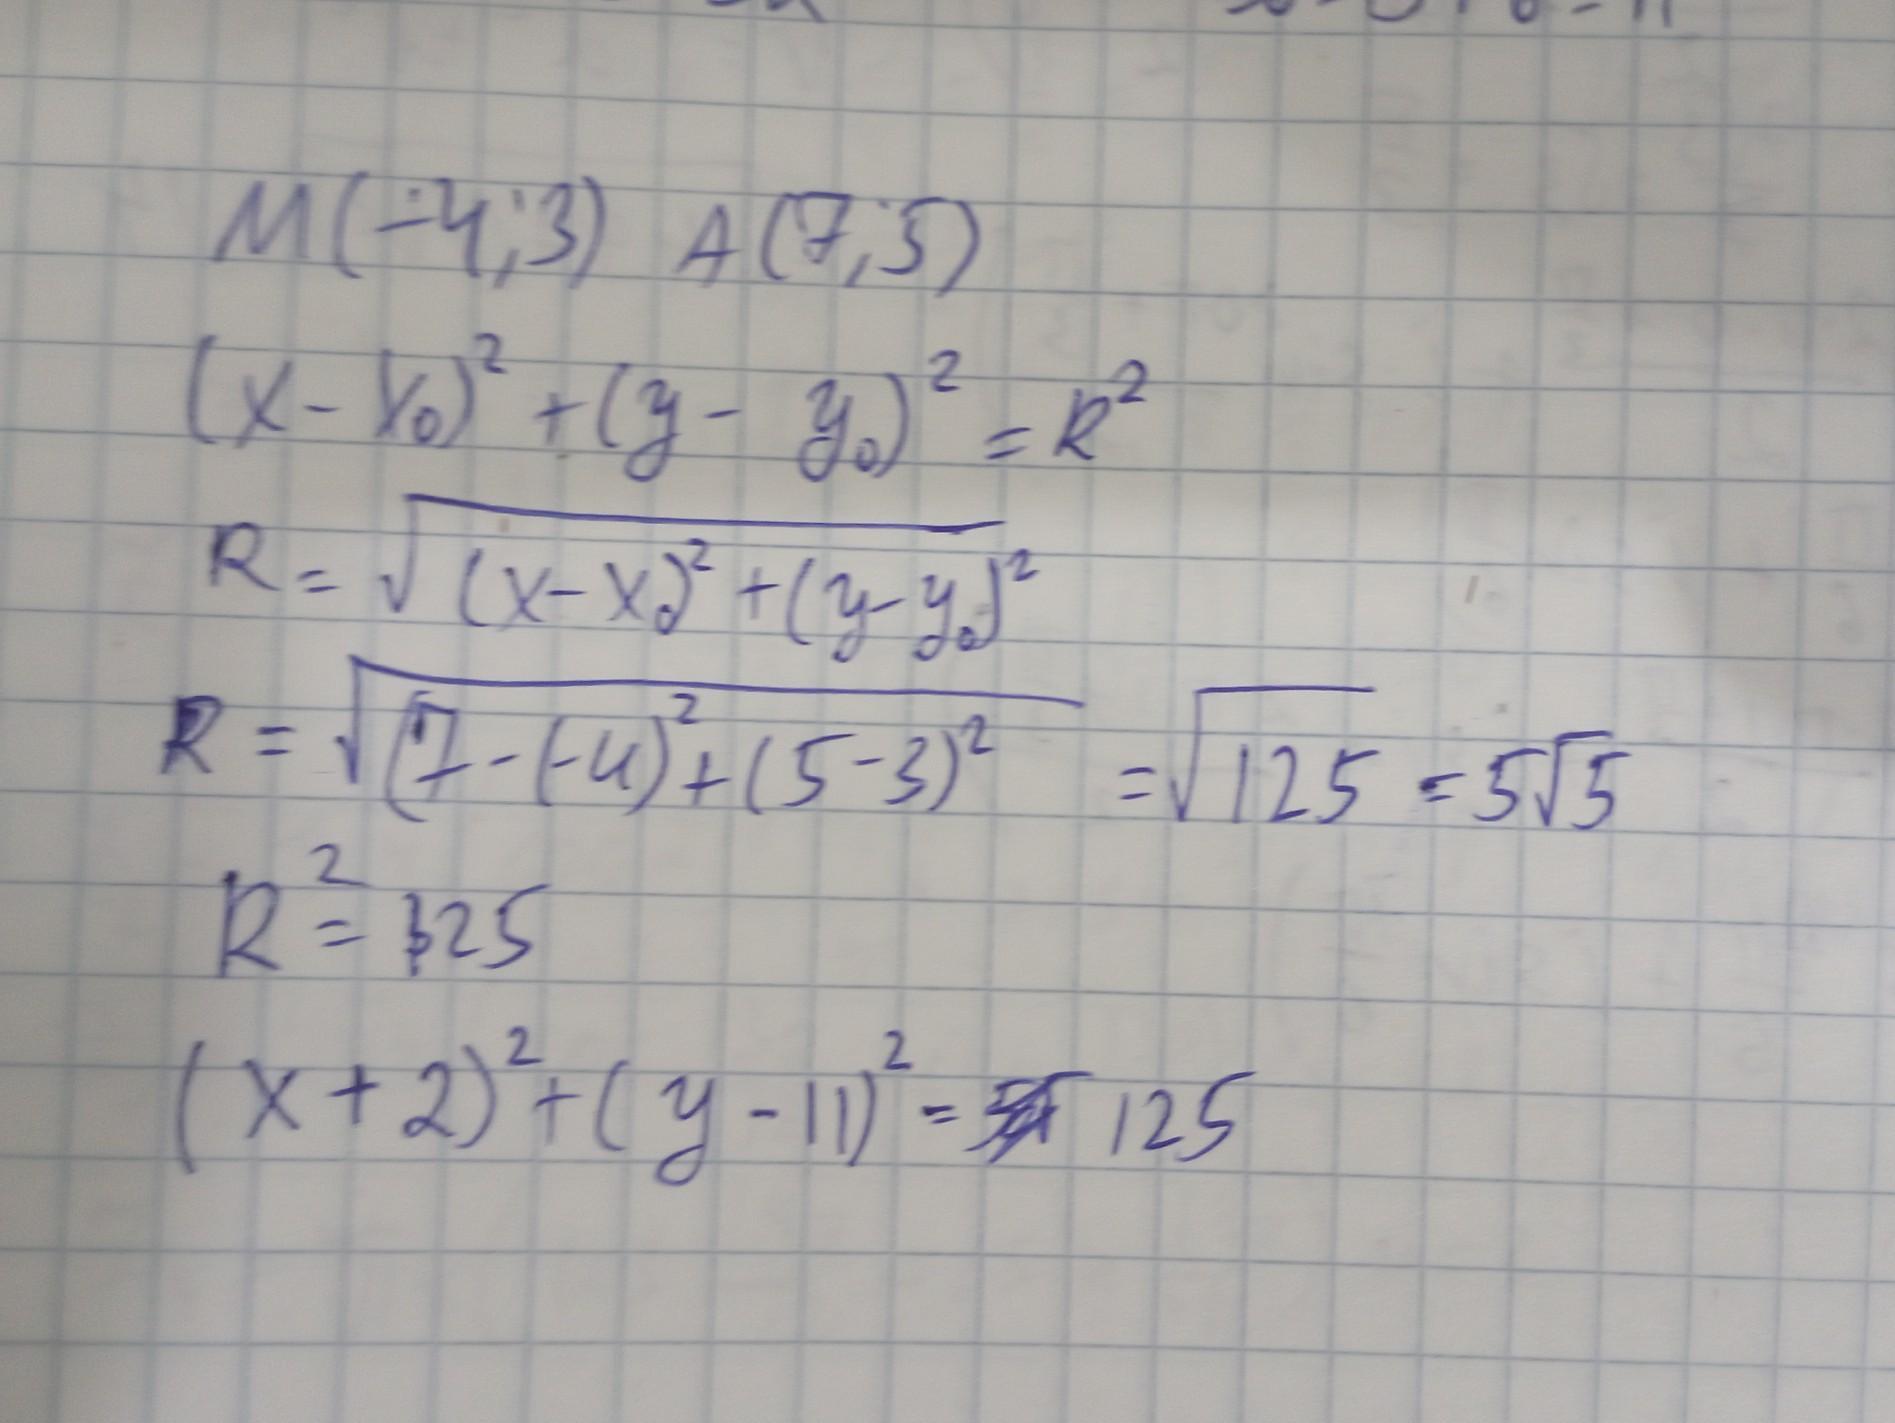 M(-4;3) A(7;5)
(x - x₀)² + (y - y₀)² = R²
R = √(x-x₀)² + (y-y₀)²
R = √(7-(-4)² + (5-3)² = √125 = 5√5
R² = 125
(x + 2)² + (y - 11)² = 125